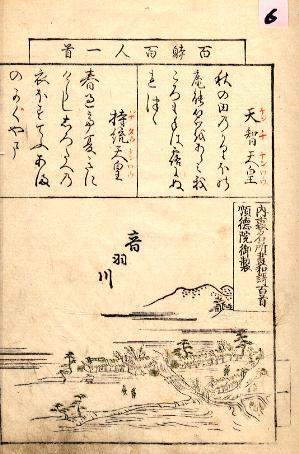 6
百人一首
天智天皇
秋の田乃かりほの
庵能とまをあらみわが
ころもては露にぬ
れつゝ
持統天皇
春過て夏きに
けらし白たへの
衣ほすてふあま
のかくやま
内裏名所
百首
順德院御製
音羽川